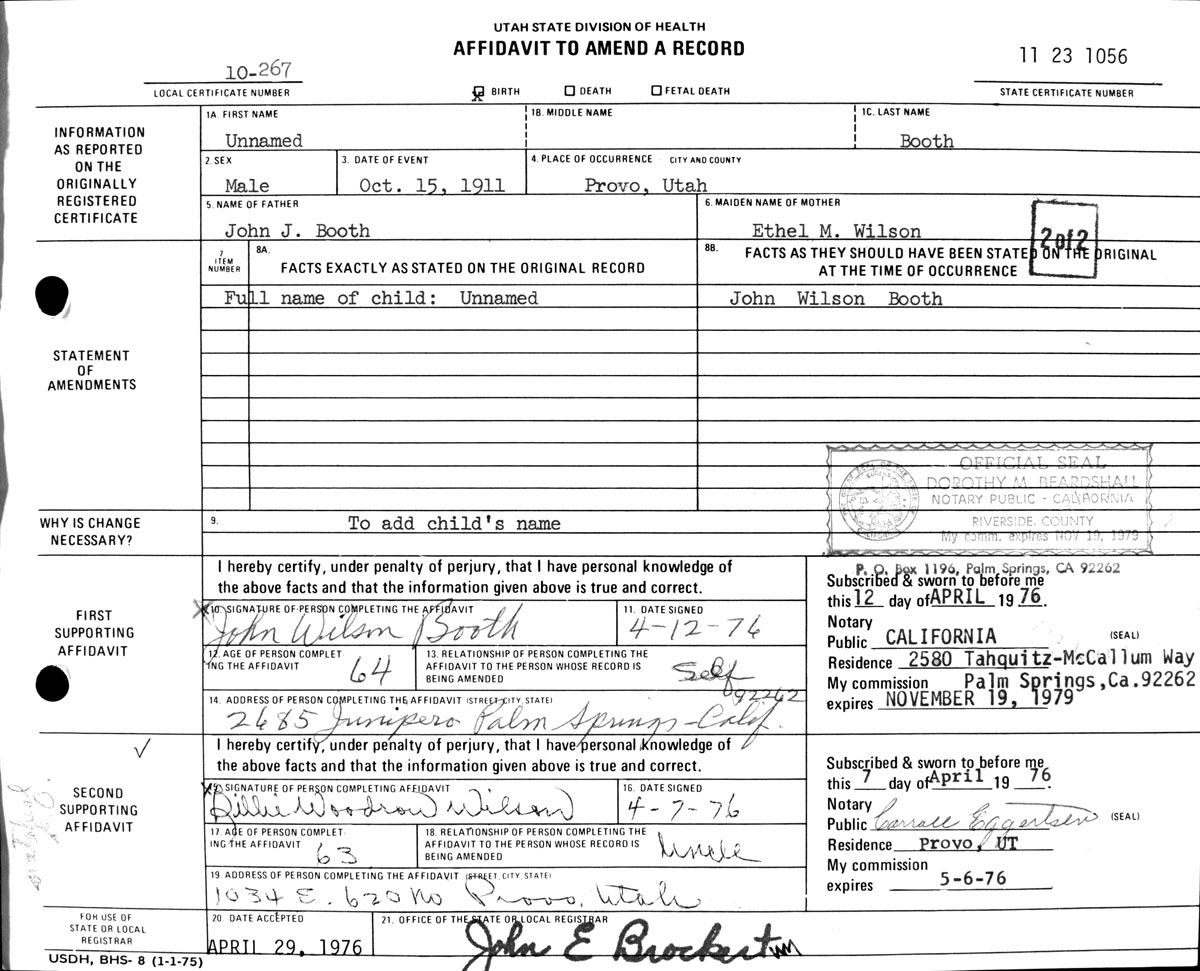 UTAH STATE DIVISION OF HEALTH
AFFIDAVIT TO AMEND A RECORD
10-267
LOCAL CERTIFICATE NUMBER
X BIRTH DEATH FETAL DEATH
11 23 1056
STATE CERTIFICATE NUMBER
INFORMATION
AS REPORTED
ON THE
ORIGINALLY
REGISTERED
CERTIFICATE
1A. FIRST NAME 1B. MIDDLE NAME 1C. LAST NAME
Unnamed Booth
2. SEX 3. DATE OF EVENT 4. PLACE OF OCCURRENCE - CITY AND COUNTY
Male Oct. 15, 1911 Provo, Utah
5. NAME OF FATHER 6. MAIDEN NAME OF MOTHER
John J. Booth Ethel M. Wilson
2 of 2
STATEMENT
OF
AMENDMENTS
7
ITEM
NUMBER
8A.
FACTS EXACTLY AS STATED ON THE ORIGINAL RECORD
8B.
FACTS AS THEY SHOULD HAVE BEEN STATED ON THE ORIGINAL
AT THE TIME OF OCCURRENCE
Full name of child: Unnamed John Wilson Booth
OFFICIAL SEAL
DOROTHY M. BEARDSHALL
NOTARY PUBLIC - CALIFORNIA
RIVERSIDE COUNTY
My comm. expires NOV 19, 1979
P. O. Box 1196, Palm Springs, CA 92262
WHY IS CHANGE
NECESSARY?
9. To add child's name
FIRST
SUPPORTING
AFFIDAVIT
I hereby certify, under penalty of perjury, that I have personal knowledge of
the above facts and that the information given above is true and correct.
10. SIGNATURE OF PERSON COMPLETING THE AFFIDAVIT 11. DATE SIGNED
John Wilson Booth 4-12-76
12. AGE OF PERSON COMPLET-
ING THE AFFIDAVIT
64
13. RELATIONSHIP OF PERSON COMPLETING THE
AFFIDAVIT TO THE PERSON WHOSE RECORD IS
BEING AMENDED
Self
14. ADDRESS OF PERSON COMPLETING THE AFFIDAVIT (STREET, CITY, STATE)
2685 Junipero Palm Springs - Calif. 92262
Subscribed & sworn to before me
this 12 day of APRIL 19 76.
Notary
Public CALIFORNIA (SEAL)
Residence 2580 Tahquitz-McCallum Way
My commission Palm Springs, Ca. 92262
expires NOVEMBER 19, 1979
SECOND
SUPPORTING
AFFIDAVIT
I hereby certify, under penalty of perjury, that I have personal knowledge of
the above facts and that the information given above is true and correct.
15. SIGNATURE OF PERSON COMPLETING AFFIDAVIT 16. DATE SIGNED
Billie Woodrow Wilson 4-7-76
17. AGE OF PERSON COMPLET-
ING THE AFFIDAVIT
63
18. RELATIONSHIP OF PERSON COMPLETING THE
AFFIDAVIT TO THE PERSON WHOSE RECORD IS
BEING AMENDED
Uncle
19. ADDRESS OF PERSON COMPLETING THE AFFIDAVIT (STREET, CITY, STATE)
1034 E. 620 No Provo, Utah
Subscribed & sworn to before me
this 7 day of April 19 76
Notary
Public Carroll Eggertsen (SEAL)
Residence Provo, UT
My commission
expires 5-6-76
FOR USE OF
STATE OR LOCAL
REGISTRAR
20. DATE ACCEPTED 21. OFFICE OF THE STATE OR LOCAL REGISTRAR
APRIL 29, 1976 John E Brockert
USDH, BHS- 8 (1-1-75)